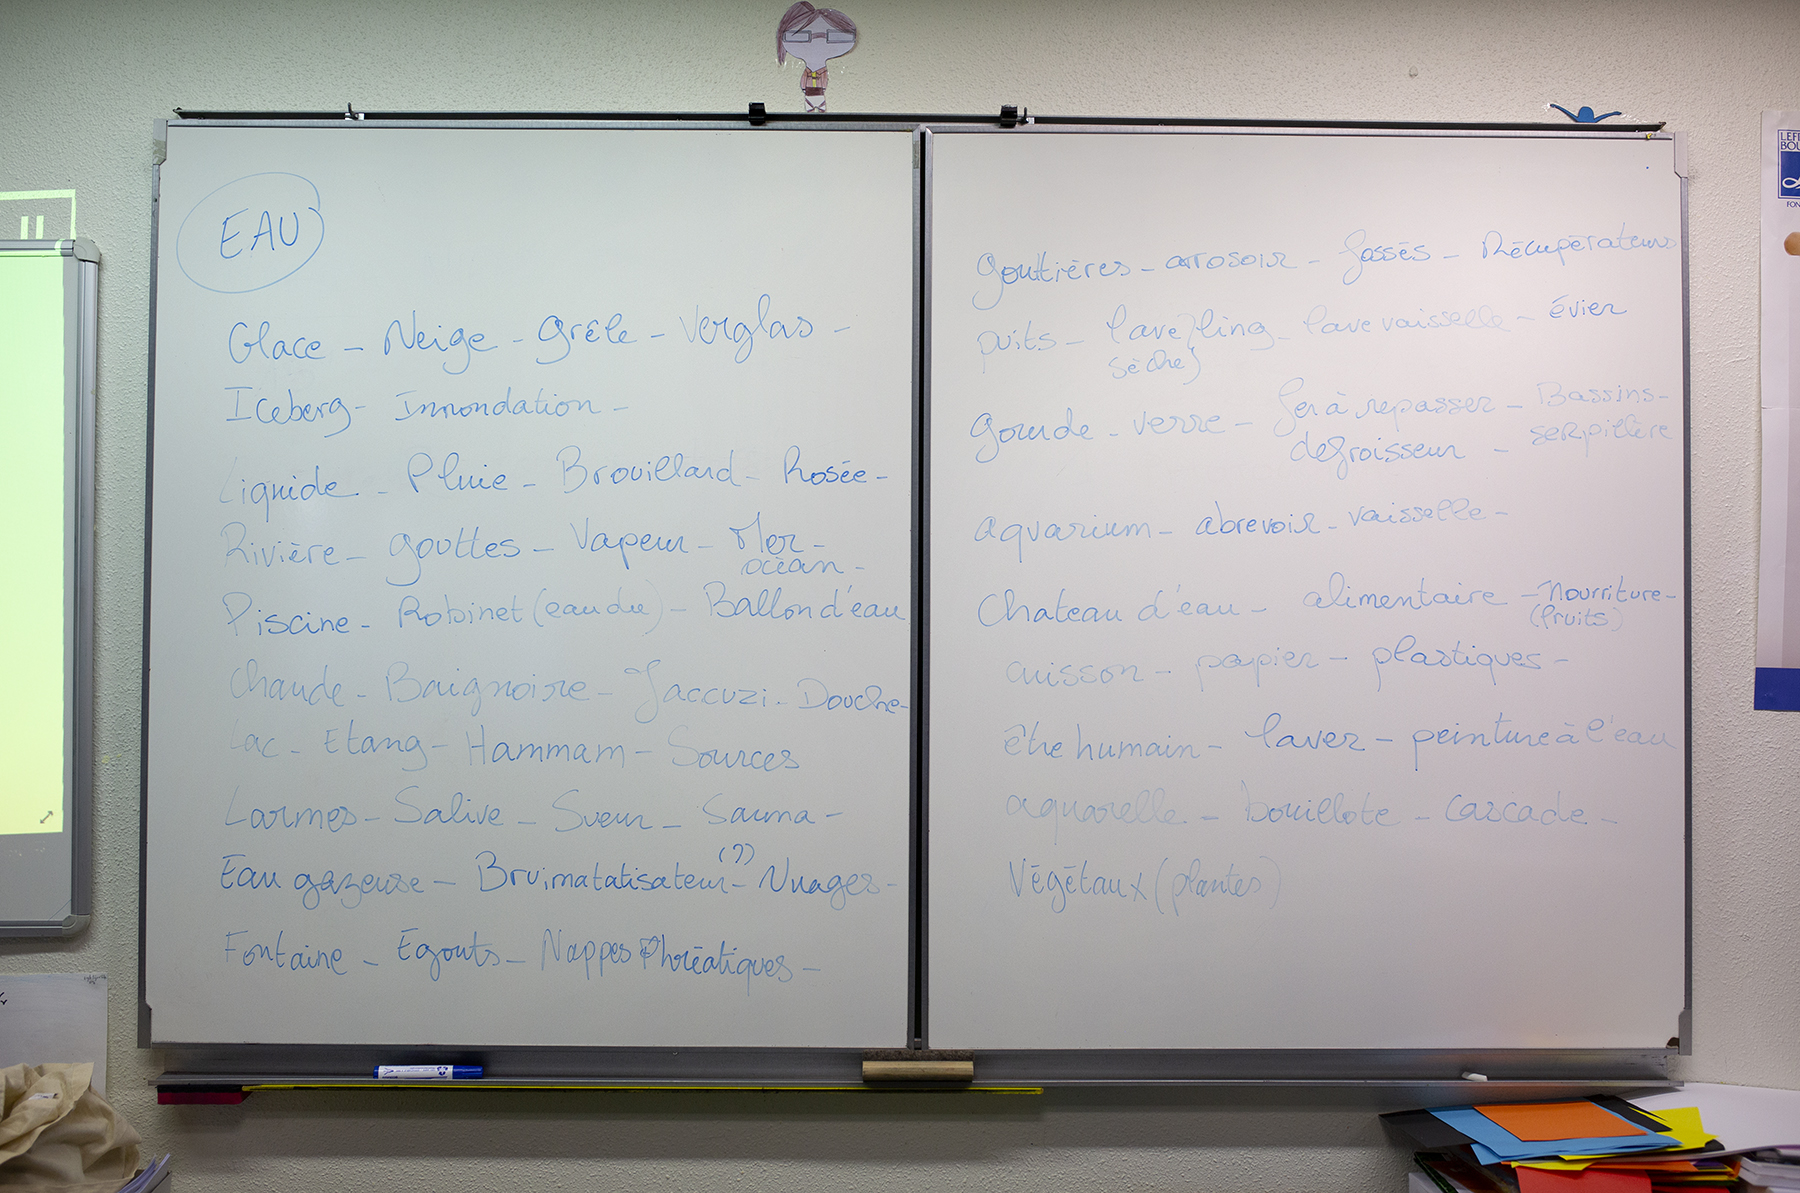 EAU
Glace - Neige - Grêle - Verglas -
Iceberg - Innondation -
Liquide - Pluie - Brouillard - Rosée -
Rivière - gouttes - Vapeur - Mer -
océan -
Piscine - Robinet (eau du) - Ballon d'eau
Chaude - Baignoire - Jaccuzi - Douche -
Lac - Etang - Hammam - Sources
Larmes - Salive - Sueur - Sauna -
Eau gazeuse - Bruimatatisateur (??) - Nuages -
Fontaine - Egouts - Nappes Phréatiques -
gouttières - arrosoir - fossés - Récupérateurs
puits - lave } ling - lave vaisselle - évier
sèche }
gourde - verre - fer à repasser - Bassins -
defroisseur - serpillère
aquarium - abrevoir - vaisselle -
Chateau d'eau - alimentaire - Nourriture -
(fruits)
cuisson - papier - plastiques -
être humain - laver - peinture à l'eau
aquarelle - bouillote - cascade -
Végétaux (plantes)
LEFE
BOU
FON